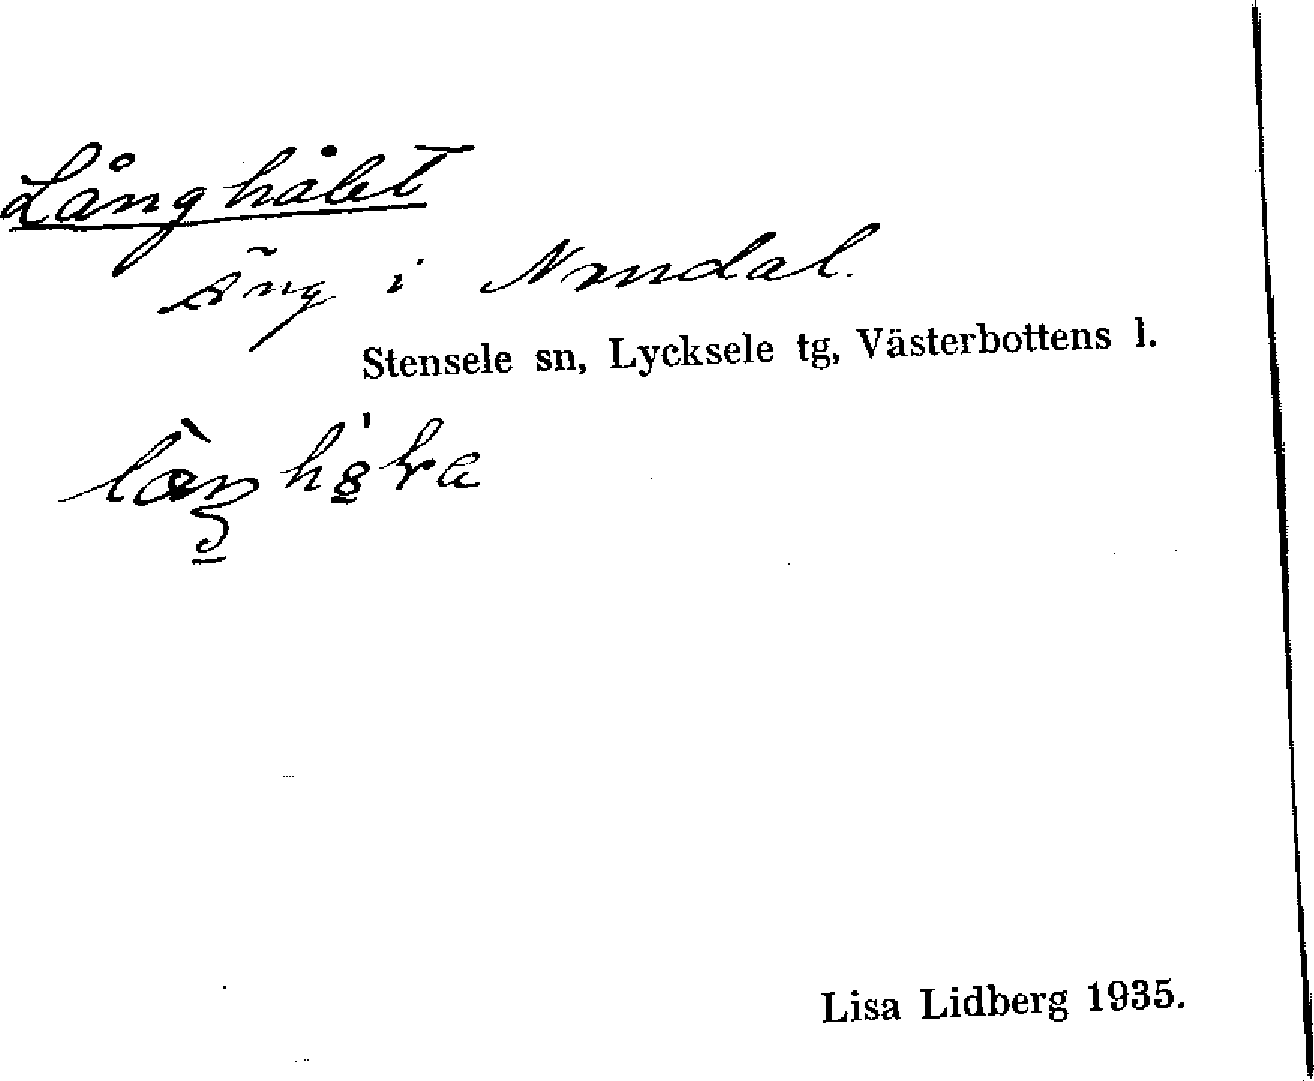 Långhålet
Äng i
Stensele sn, Lycksele tg, Västerbottens l.
Lisa Lidberg 1935.